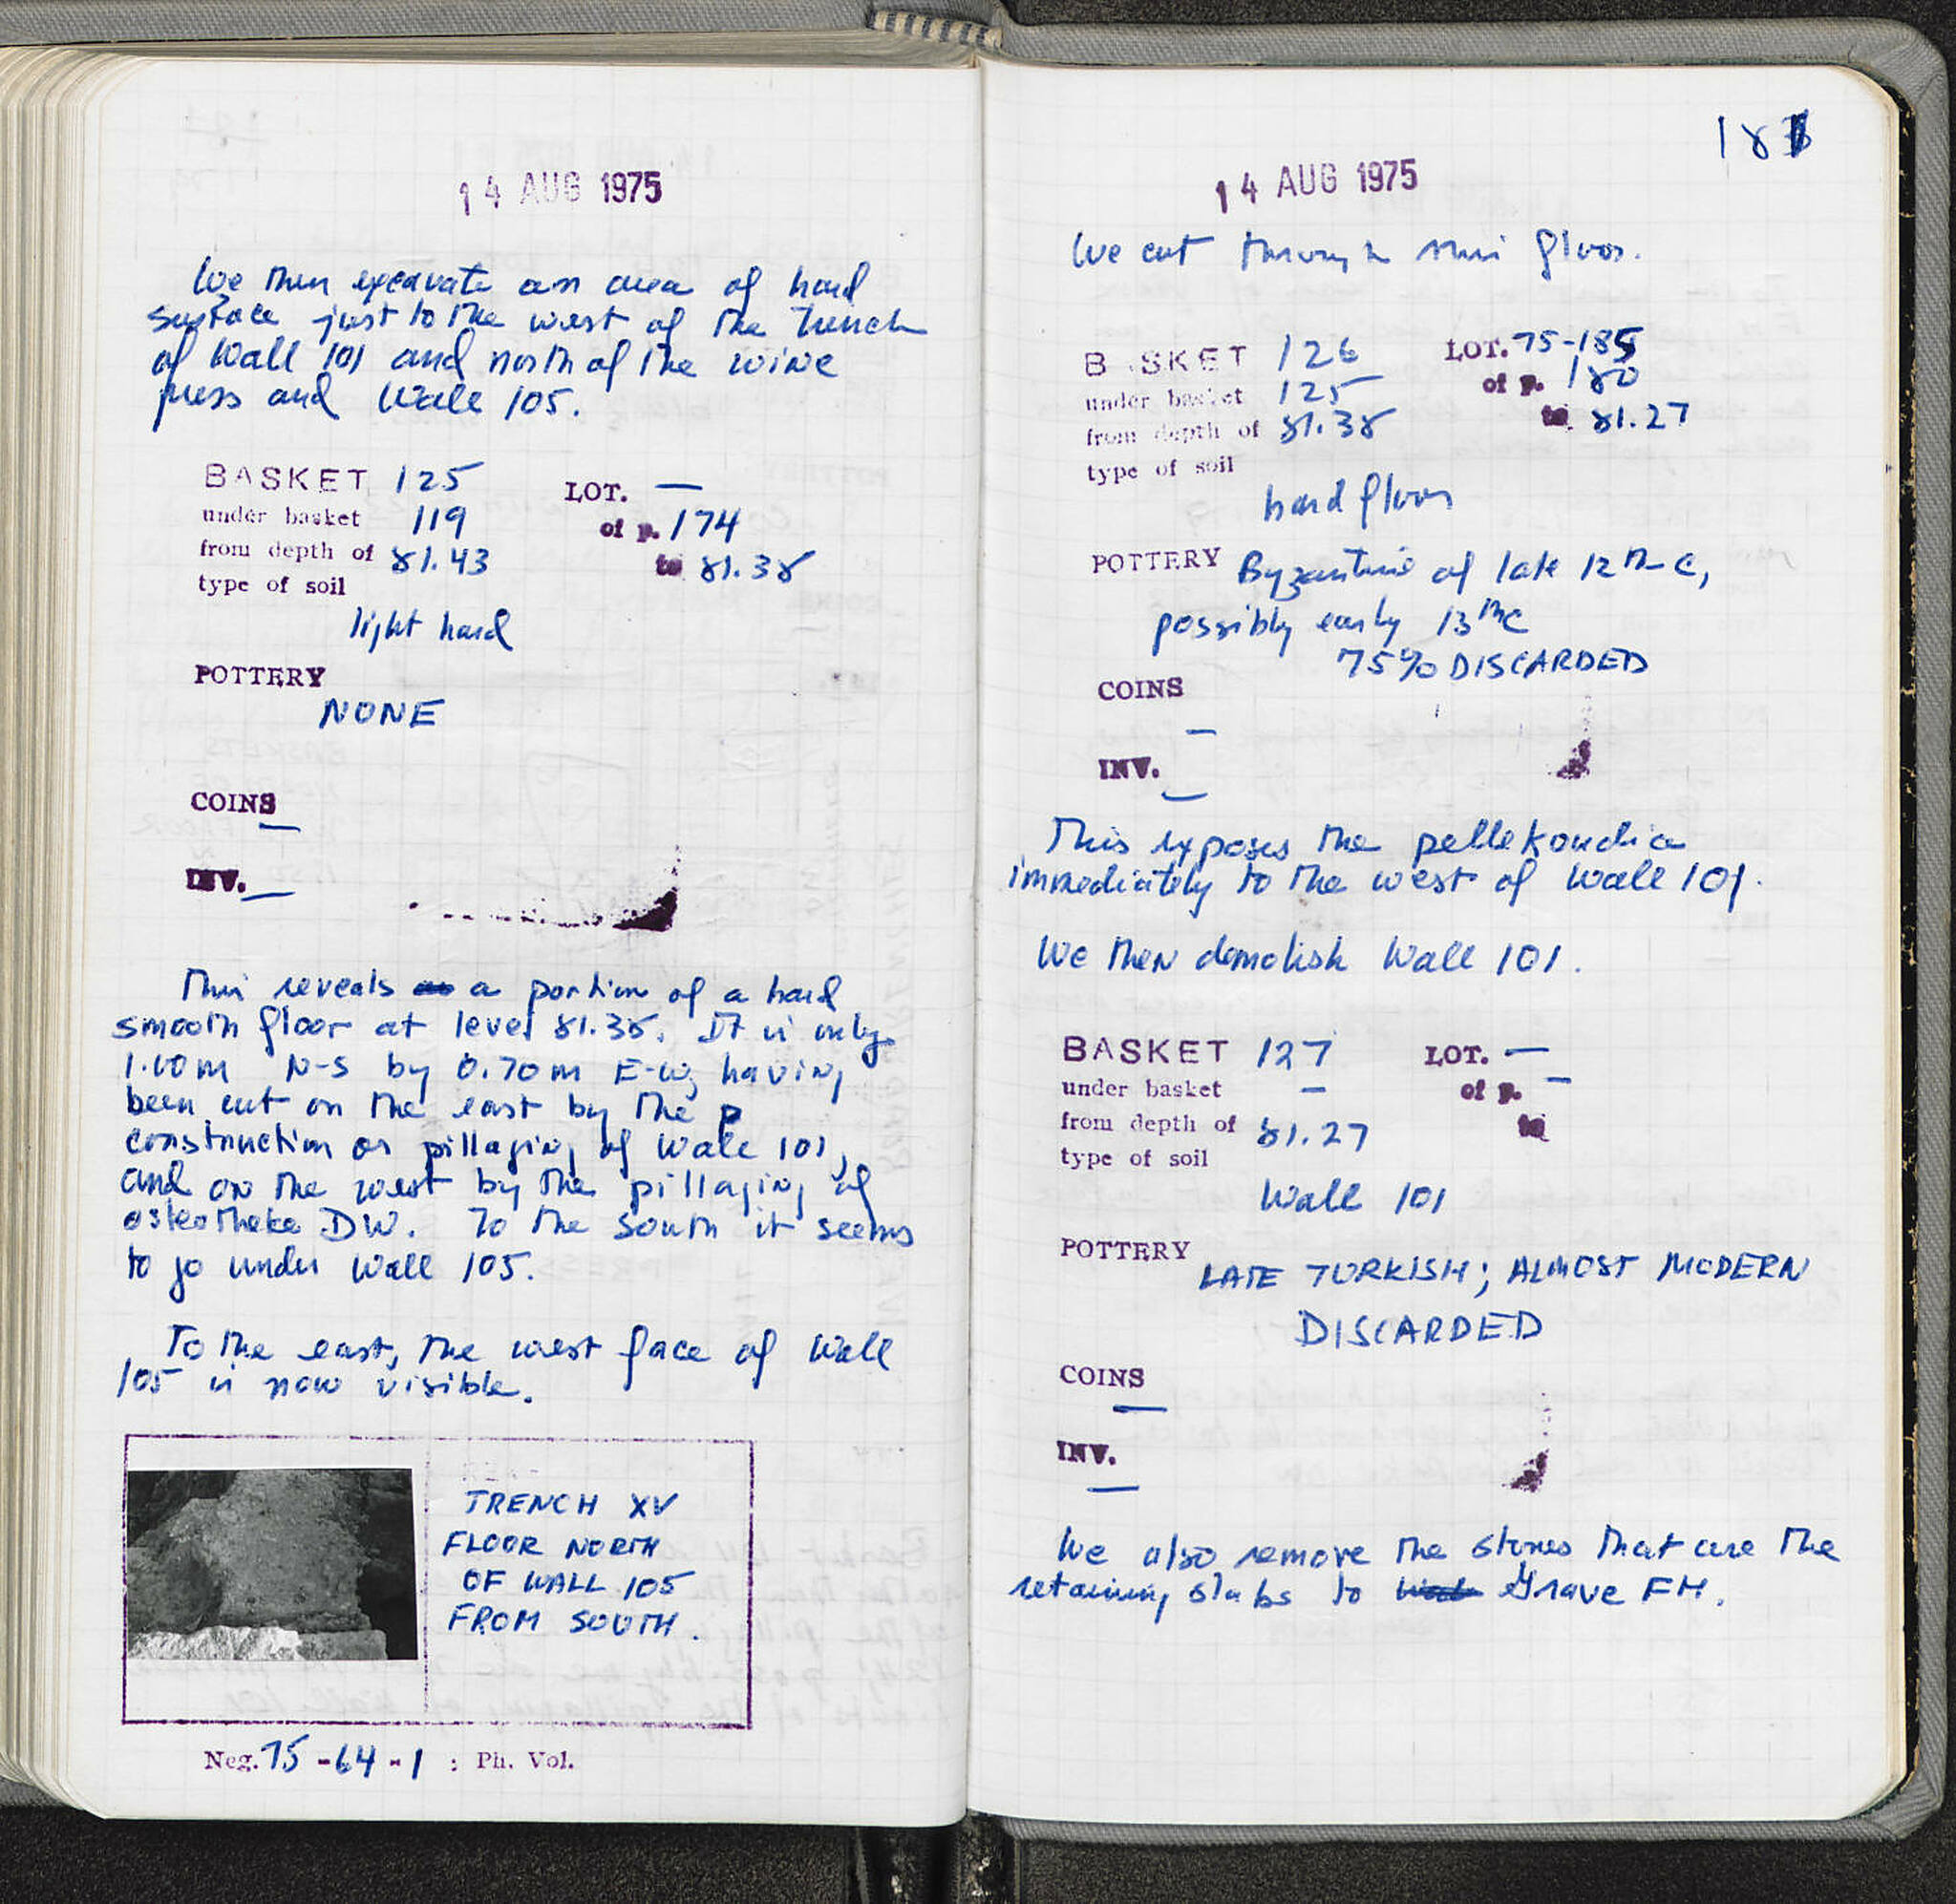 14 AUG 1975
We then excavate an area of hard
surface just to the west of the trench
of Wall 101 and north of the wine
press and Wall 105.
BASKET 125 LOT. —
under basket 119 of p. 174
from depth of 81.43 to 81.38
type of soil
light hard
POTTERY
NONE
COINS
—
INV. —
This reveals a portion of a hard
smooth floor at level 81.38. It is only
1.00m N-S by 0.70m E-W, having
been cut on the east by the
construction or pillaging of Wall 101,
and on the west by the pillaging of
osteotheke DW. To the south it seems
to go under Wall 105.
To the east, the west face of Wall
105 is now visible.
TRENCH XV
FLOOR NORTH
OF WALL 105
FROM SOUTH.
Neg. 75-64-1 : Ph. Vol.
14 AUG 1975
We cut through this floor.
BASKET 126 LOT. 75-185
under basket 125 of p. 180
from depth of 81.38 to 81.27
type of soil
hard floor
POTTERY Byzantine of late 12th c,
possibly early 13th c
75% DISCARDED
COINS
—
INV.
—
This exposes the pellekoudia
immediately to the west of Wall 101.
We then demolish Wall 101.
BASKET 127 LOT. —
under basket — of p. —
from depth of 81.27 to
type of soil
Wall 101
POTTERY LATE TURKISH; ALMOST MODERN
DISCARDED
COINS
—
INV.
—
We also remove the stones that are the
retaining slabs to Grave FH.